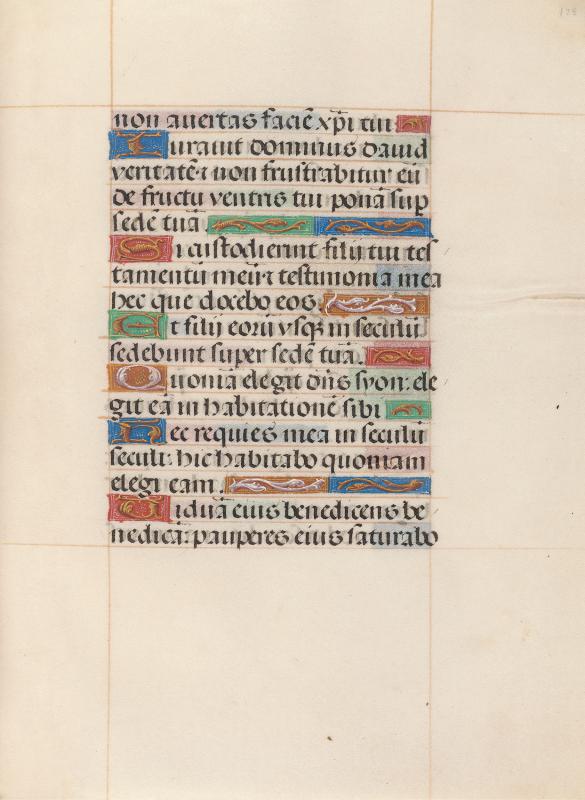 128
non avertas faciē xp̄i tui
Iuravit dominus david
veritatē⁊ non frustrabitur eū
de fructu ventris tui ponā sup
sedē tuā
Si custodierint filij tui tes
tamentū meū⁊ testimonia mea
hec que docebo eos
Et filij eorū vsqꝫ in seculū
sedebunt super sedē tuā.
Quoniā elegit dn̄s syon: ele
git eā in habitationē sibi
Hec requies mea in seculū
seculi: hic habitabo quoniam
elegi eam.
Viduā eius benedicens be
nedicā: pauperes eius saturabo